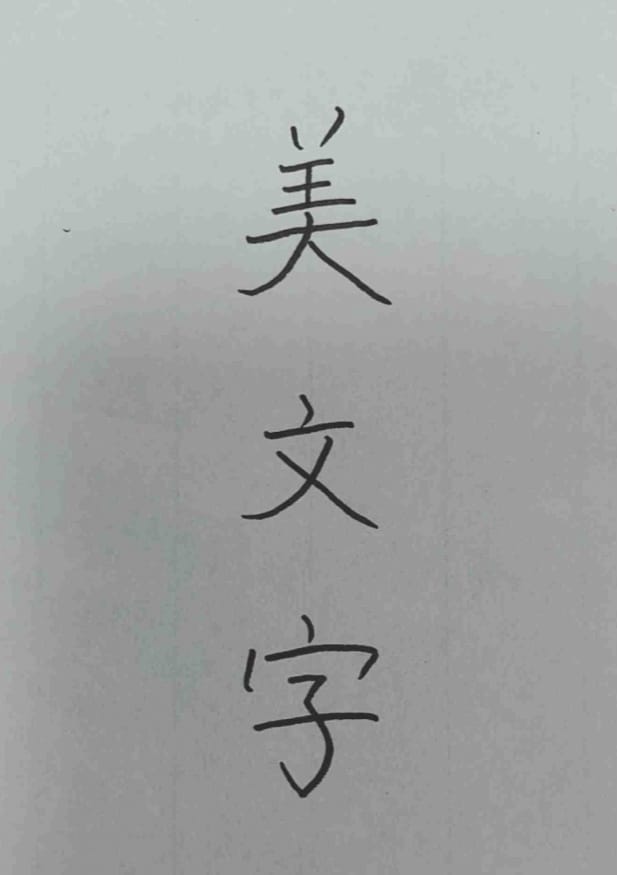 美文字